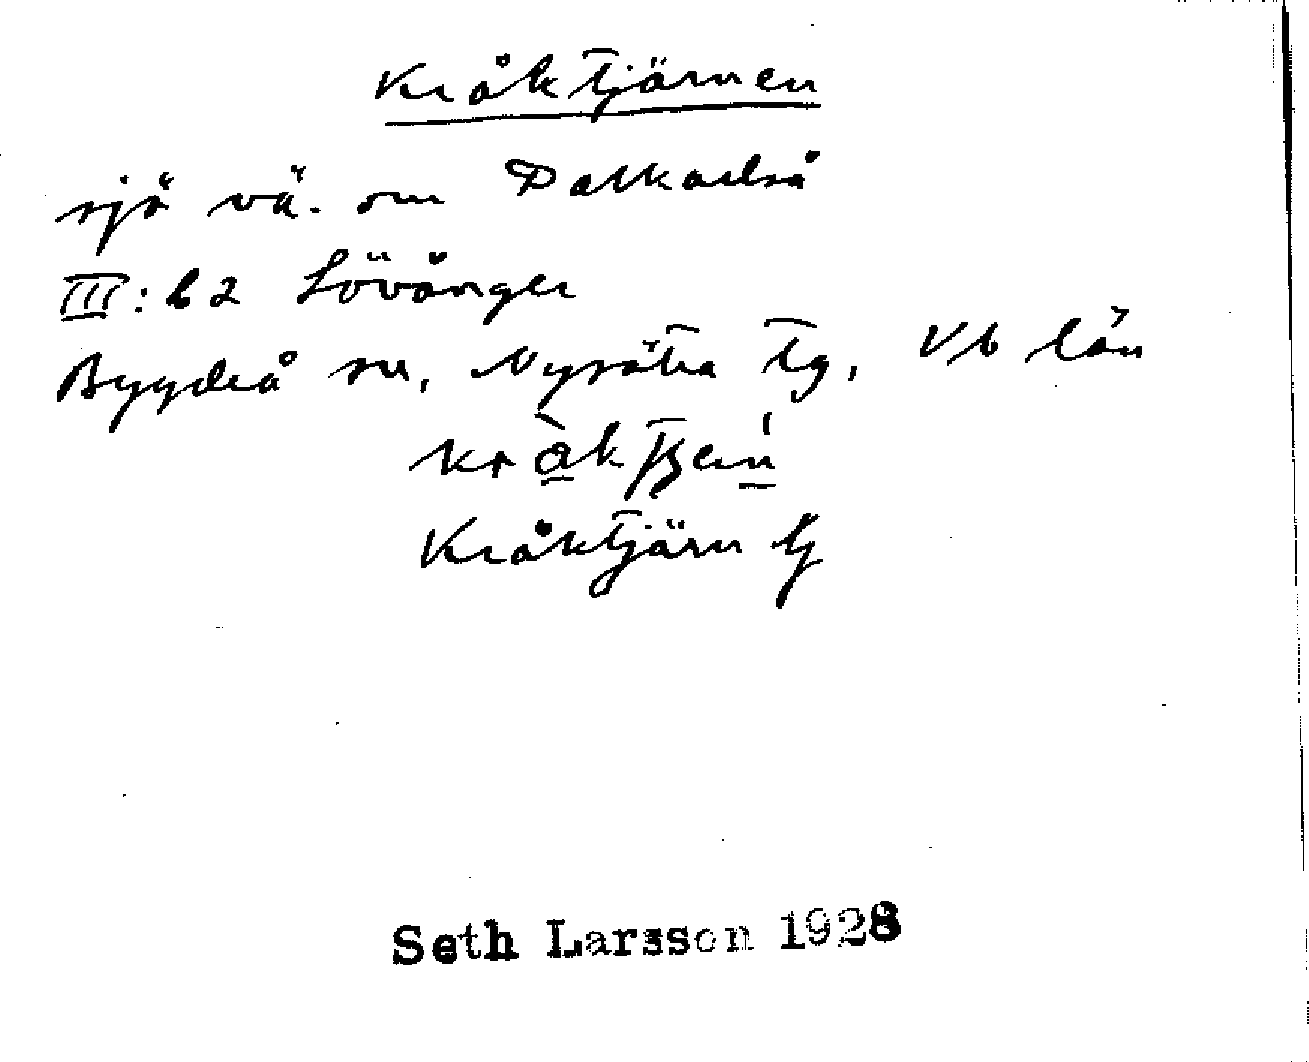 Kråktjärnen
sjö vä. om Dalkarlså
III: b 2 Lövånger
Bygdeå sn, Nysätra tg, Vb län
Kråktjärn
Seth Larsson 1928